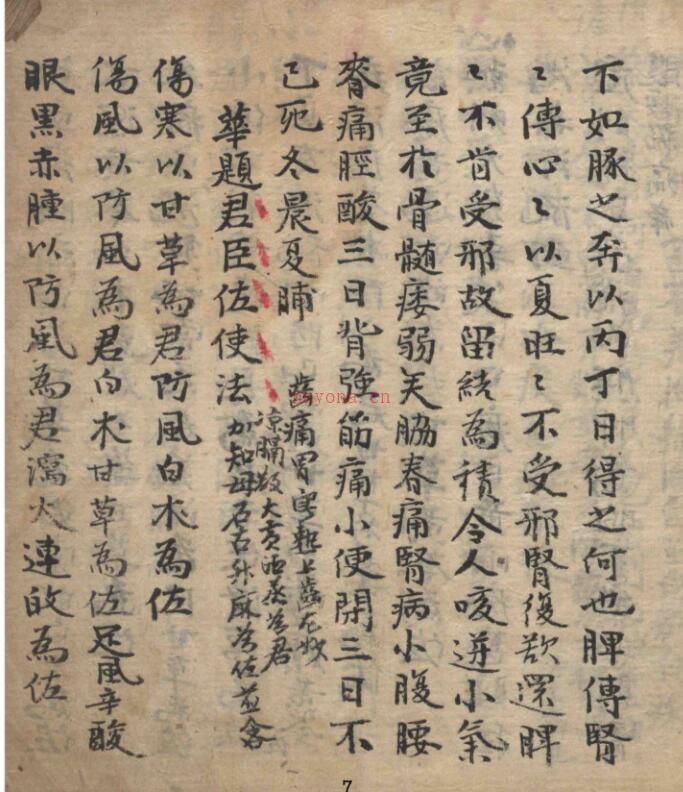 下如豚之奔以丙丁日得之何也脾傳腎
〻傳心〻以夏旺〻不受邪腎復欲還脾
〻不肯受邪故留結為積令人咳逆小氣
竟至於骨髓痿弱矣脇春痛腎病小腹腰
脊痛脛酸三日背強筋痛小便閉三日不
已死冬晨夏晡
華題君臣佐使法
齒痛胃實熱上齒
涼膈散大黃酒蒸為君
加知母石 升麻為佐 含
傷寒以甘草為君防風白朮為佐
傷風以防風為君白朮甘草為佐足風辛酸
眼黑赤腫以防風為君瀉火連 為佐
yayona.cn
7